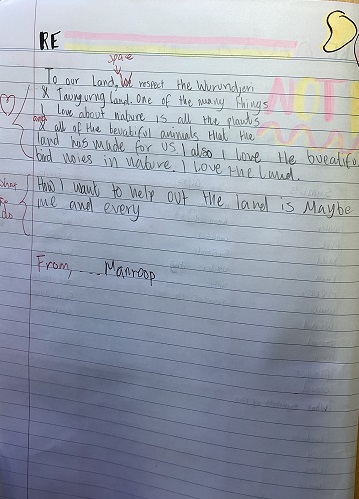 RE
space
To our Land, we respect the Wurundjeri
& Taungurng land. One of the many things
and I Love about nature is all the plants
& all of the beuatiful animals that the
land has made for us I also I love the bueatiful
bird noies in nature. I Love the Land.
what
to
do
How I want to help out the land is Maybe
me and every
From, Manroop